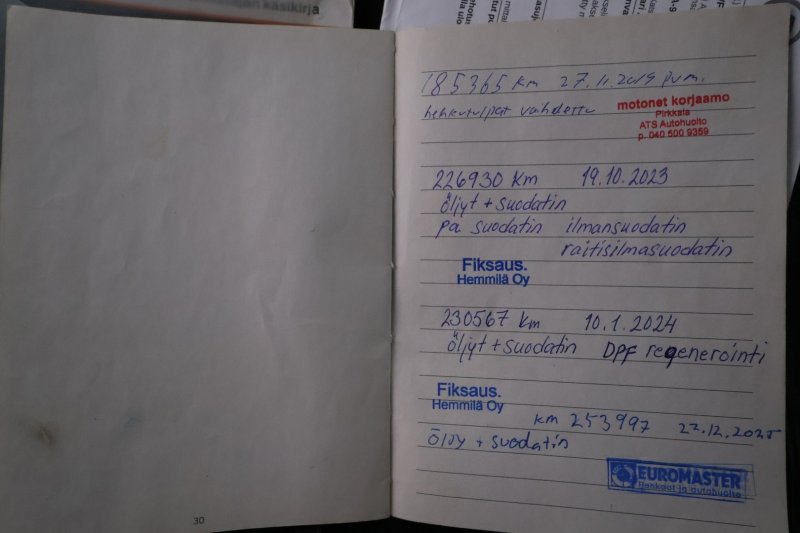 käsikirja
185365 km 27.11.2019 jum.
hehkutulpat vaihdettu
motonet korjaamo
Pirkkala
ATS Autohuolto
p. 040 500 9359
226930 km 19.10.2023
öljyt + suodatin
pa suodatin ilmansuodatin
raitisilmasuodatin
Fiksaus.
Hemmilä Oy
230567 km 10.1.2024
öljyt + suodatin DPF regenerointi
Fiksaus.
Hemmilä Oy
km 253997 22.12.2025
Öljy + suodatin
EUROMASTER
Renkaat ja autohuolto
30